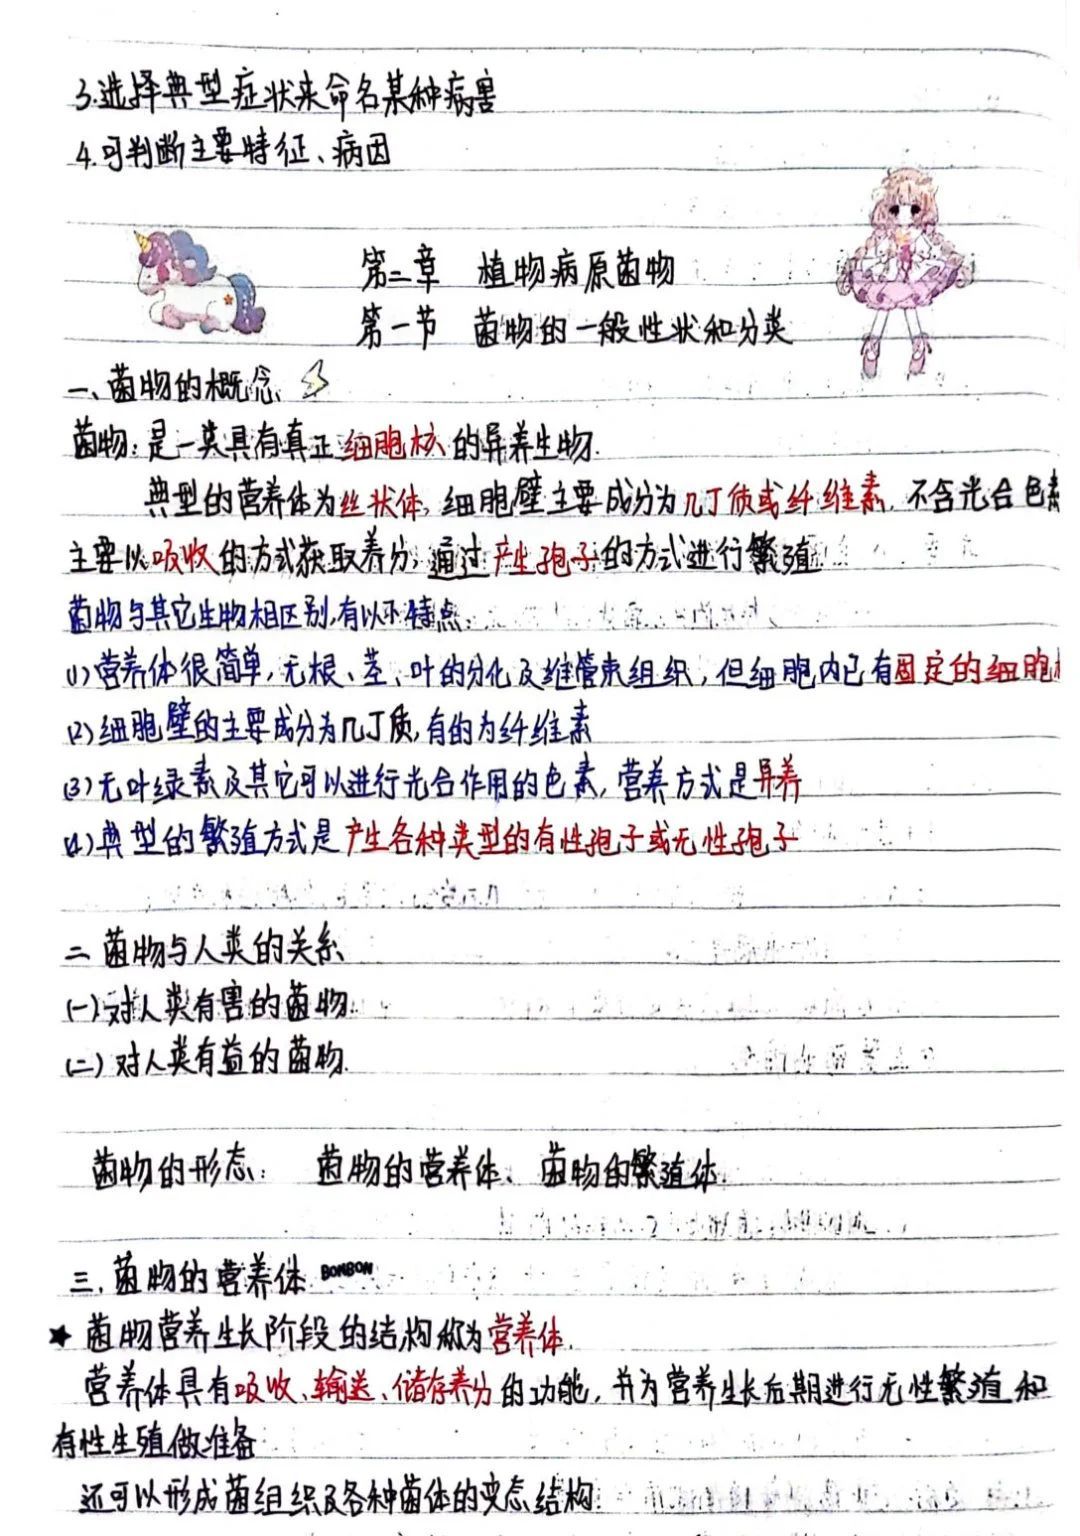 3.选择典型症状来命名某种病害
4.可判断主要特征、病因
第二章 植物病原菌物
第一节 菌物的一般性状和分类
一、菌物的概念
菌物：是一类具有真正细胞核的异养生物.
典型的营养体为丝状体,细胞壁主要成分为几丁质或纤维素.不含光合色素
主要以吸收的方式获取养分,通过产生孢子的方式进行繁殖
菌物与其它生物相区别,有以下特点
(1)营养体很简单,无根、茎、叶的分化及维管束组织,但细胞内已有固定的细胞
(2)细胞壁的主要成分为几丁质,有的为纤维素
(3)无叶绿素及其它可以进行光合作用的色素,营养方式是异养
(4)典型的繁殖方式是产生各种类型的有性孢子或无性孢子
二 菌物与人类的关系
(一)对人类有害的菌物.
(二)对人类有益的菌物.
菌物的形态： 菌物的营养体、菌物的繁殖体.
三.菌物的营养体 BONBON
★菌物营养生长阶段的结构称为营养体.
营养体具有吸收、输送、储存养分的功能,并为营养生长后期进行无性繁殖和
有性生殖做准备
还可以形成菌组织及各种菌体的变态结构.